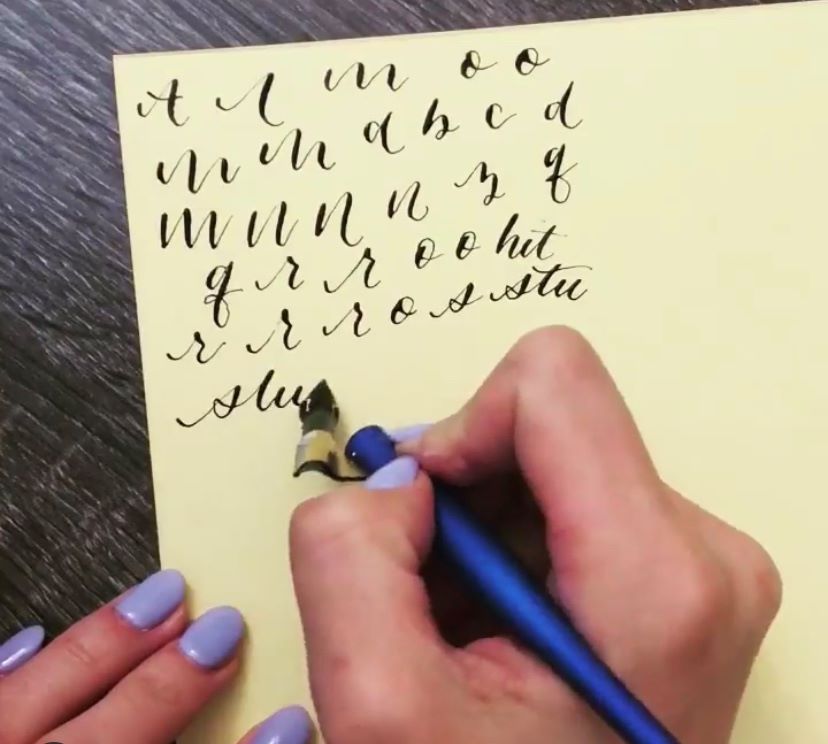 t l m o o
m m a b c d
m n n n z q
q r r o o hit
r r r o s stu
stu